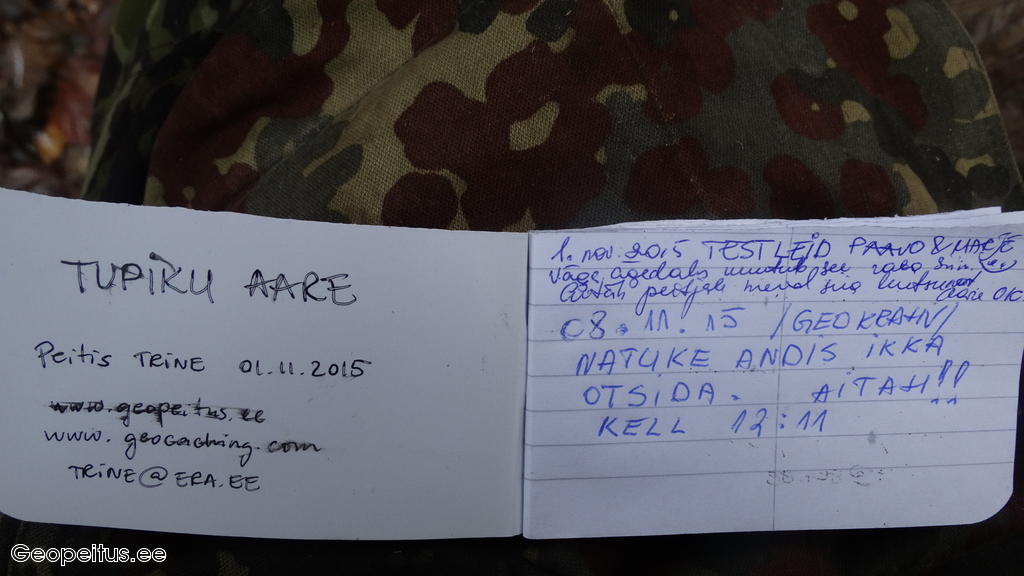 TUPIKU AARE
Peitis TRINE 01.11.2015
www.geopeitus.ee
www.geocaching.com
TRINE@ERA.EE
1. nov. 2015 TESTLEID PAAVO & MARJE
väga ägedaks muutub see raba siin
Aitäh peitjale meid siia
Aare OK.
08.11.15 /GEOKRAHV/
NATUKE ANDIS IKKA
OTSIDA. AITÄH!!
KELL 12:11
Geopeitus.ee